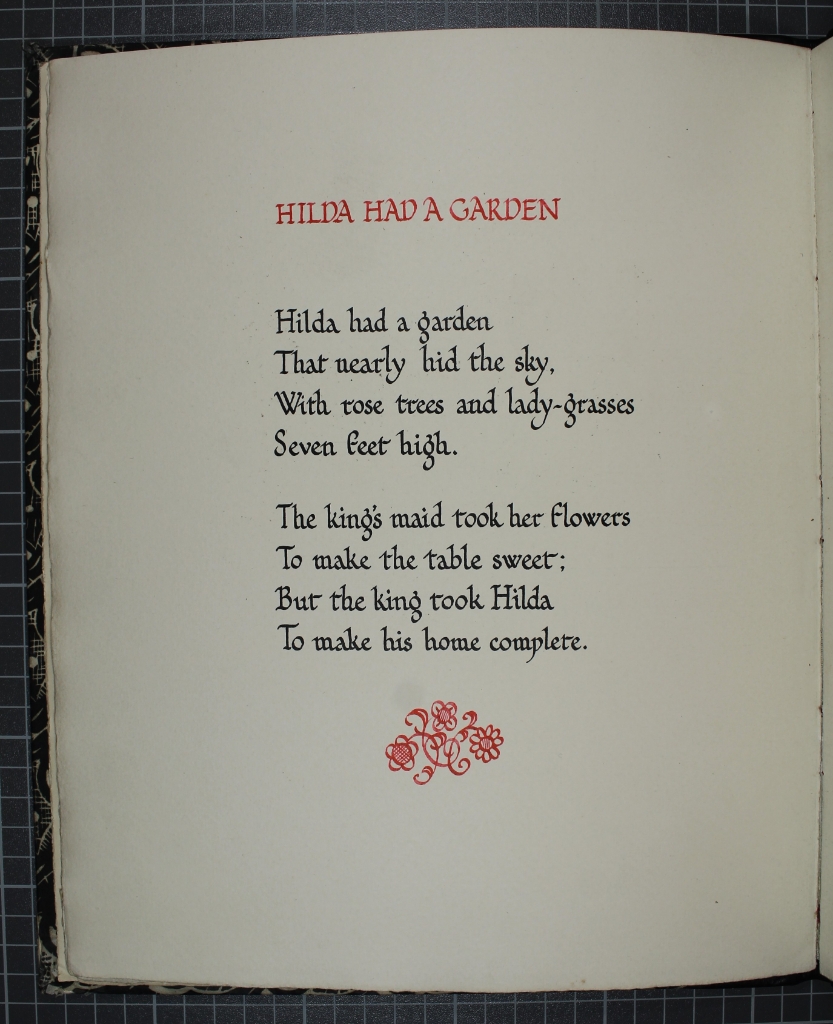 HILDA HAD A GARDEN
Hilda had a garden
That nearly hid the sky,
With rose trees and lady-grasses
Seven feet high.
The king's maid took her flowers
To make the table sweet;
But the king took Hilda
To make his home complete.